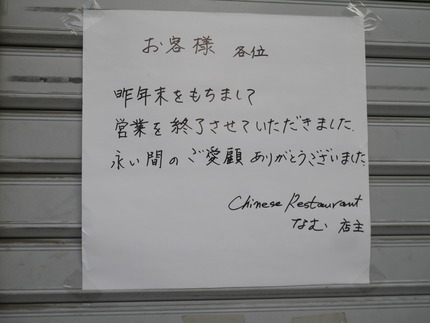 お客様 各位
昨年末をもちまして
営業を終了させていただきました.
永い間のご愛顧ありがとうございました.
Chinese Restaurant
なむ 店主